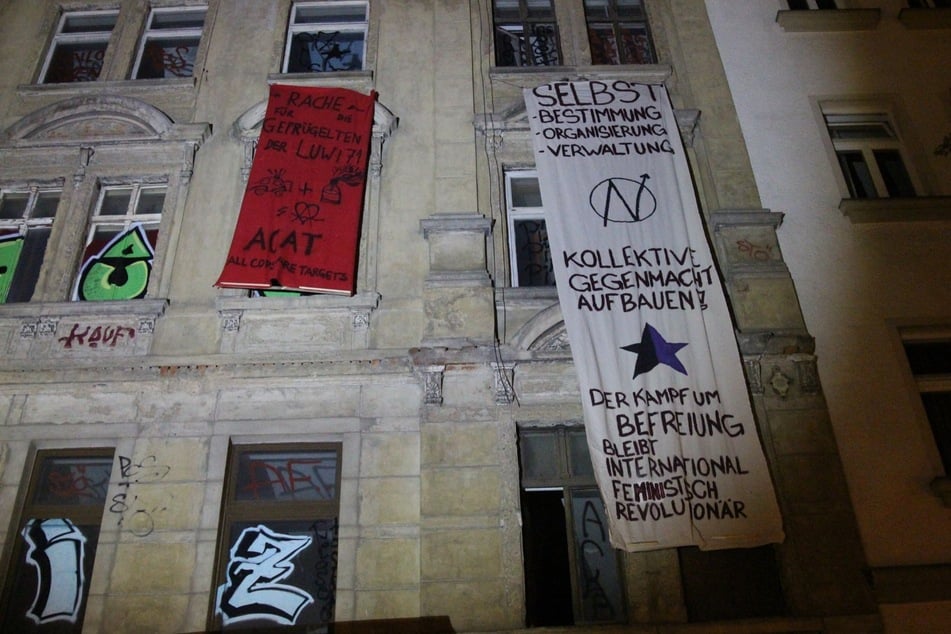 RACHE
FÜR DIE
GEPRÜGELTEN
DER LUWI71
+
=
ACAT
ALL CODS ARE TARGETS
SELBST
-BESTIMMUNG
-ORGANISIERUNG
-VERWALTUNG
KOLLEKTIVE
GEGENMACHT
AUFBAUEN!
DER KAMPF UM
BEFREIUNG
BLEIBT
INTERNATIONAL
FEMINISTISCH
REVOLUTIONÄR
KAUF
iZ